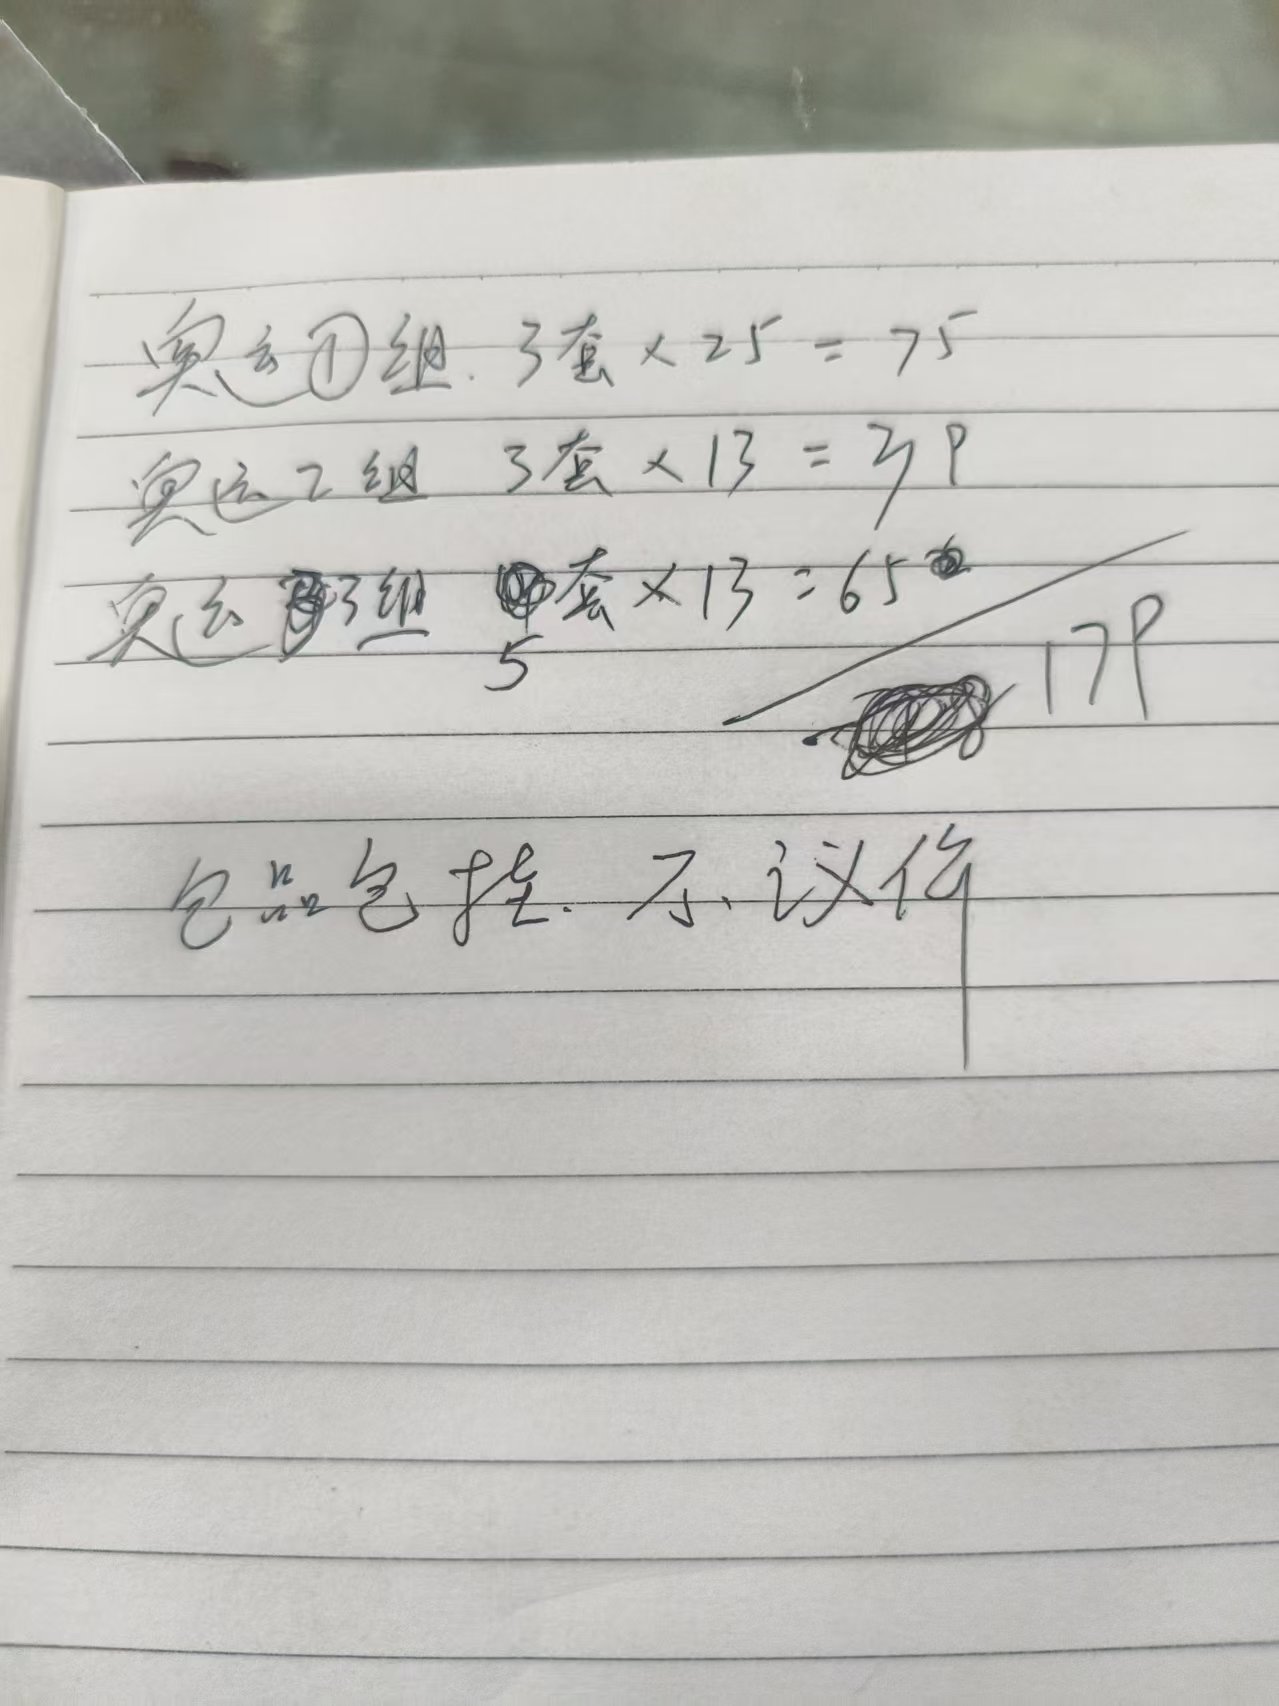 奥运①组. 3套×25=75
奥运2组 3套×13=39
奥运3组 套×13=65
5
179
包品包挂. 不议价